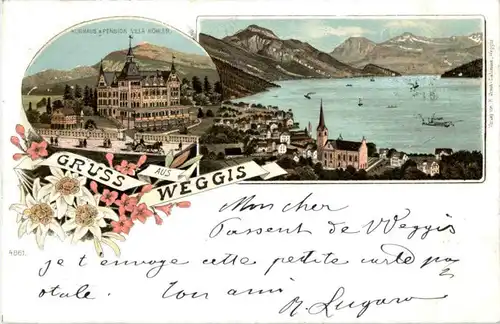 KURHAUS & PENSION VILLA KÖHLER.
GRUSS AUS WEGGIS
4061.
Mon cher
Passent de Weggis
je t envoge cette petite carte po
stale. Ton ami
R. Lugaro